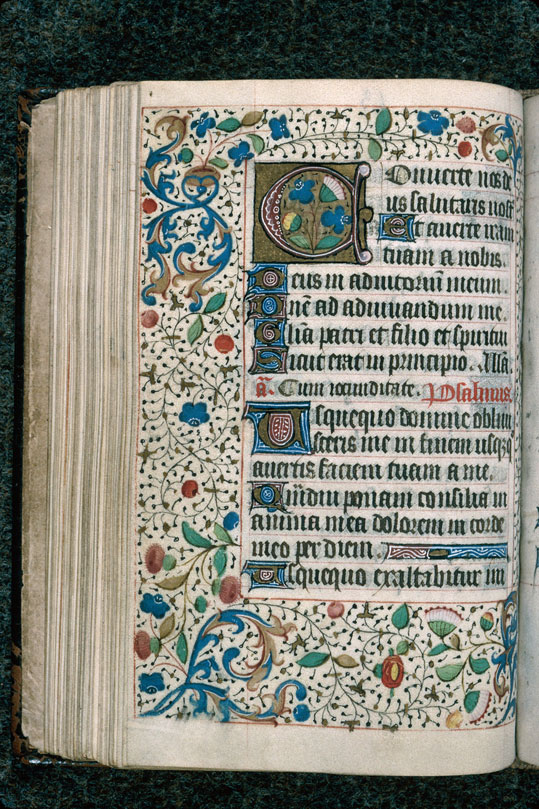 Onuerte nos de
us salutaris nostr
Et auerte iram
tuam a nobis.
Deus in adiutorium meum
Domine ad adiuuandum me.
Gloria patri et filio et spiritui
Sicut erat in principio. Alla.
a. Cum iocunditate. Psalmus.
Usquequo domine obliui
sceris me in finem usquequo
auertis faciem tuam a me.
Quamdiu ponam consilia in
anima mea dolorem in corde
meo per diem.
Usquequo exaltabitur ini